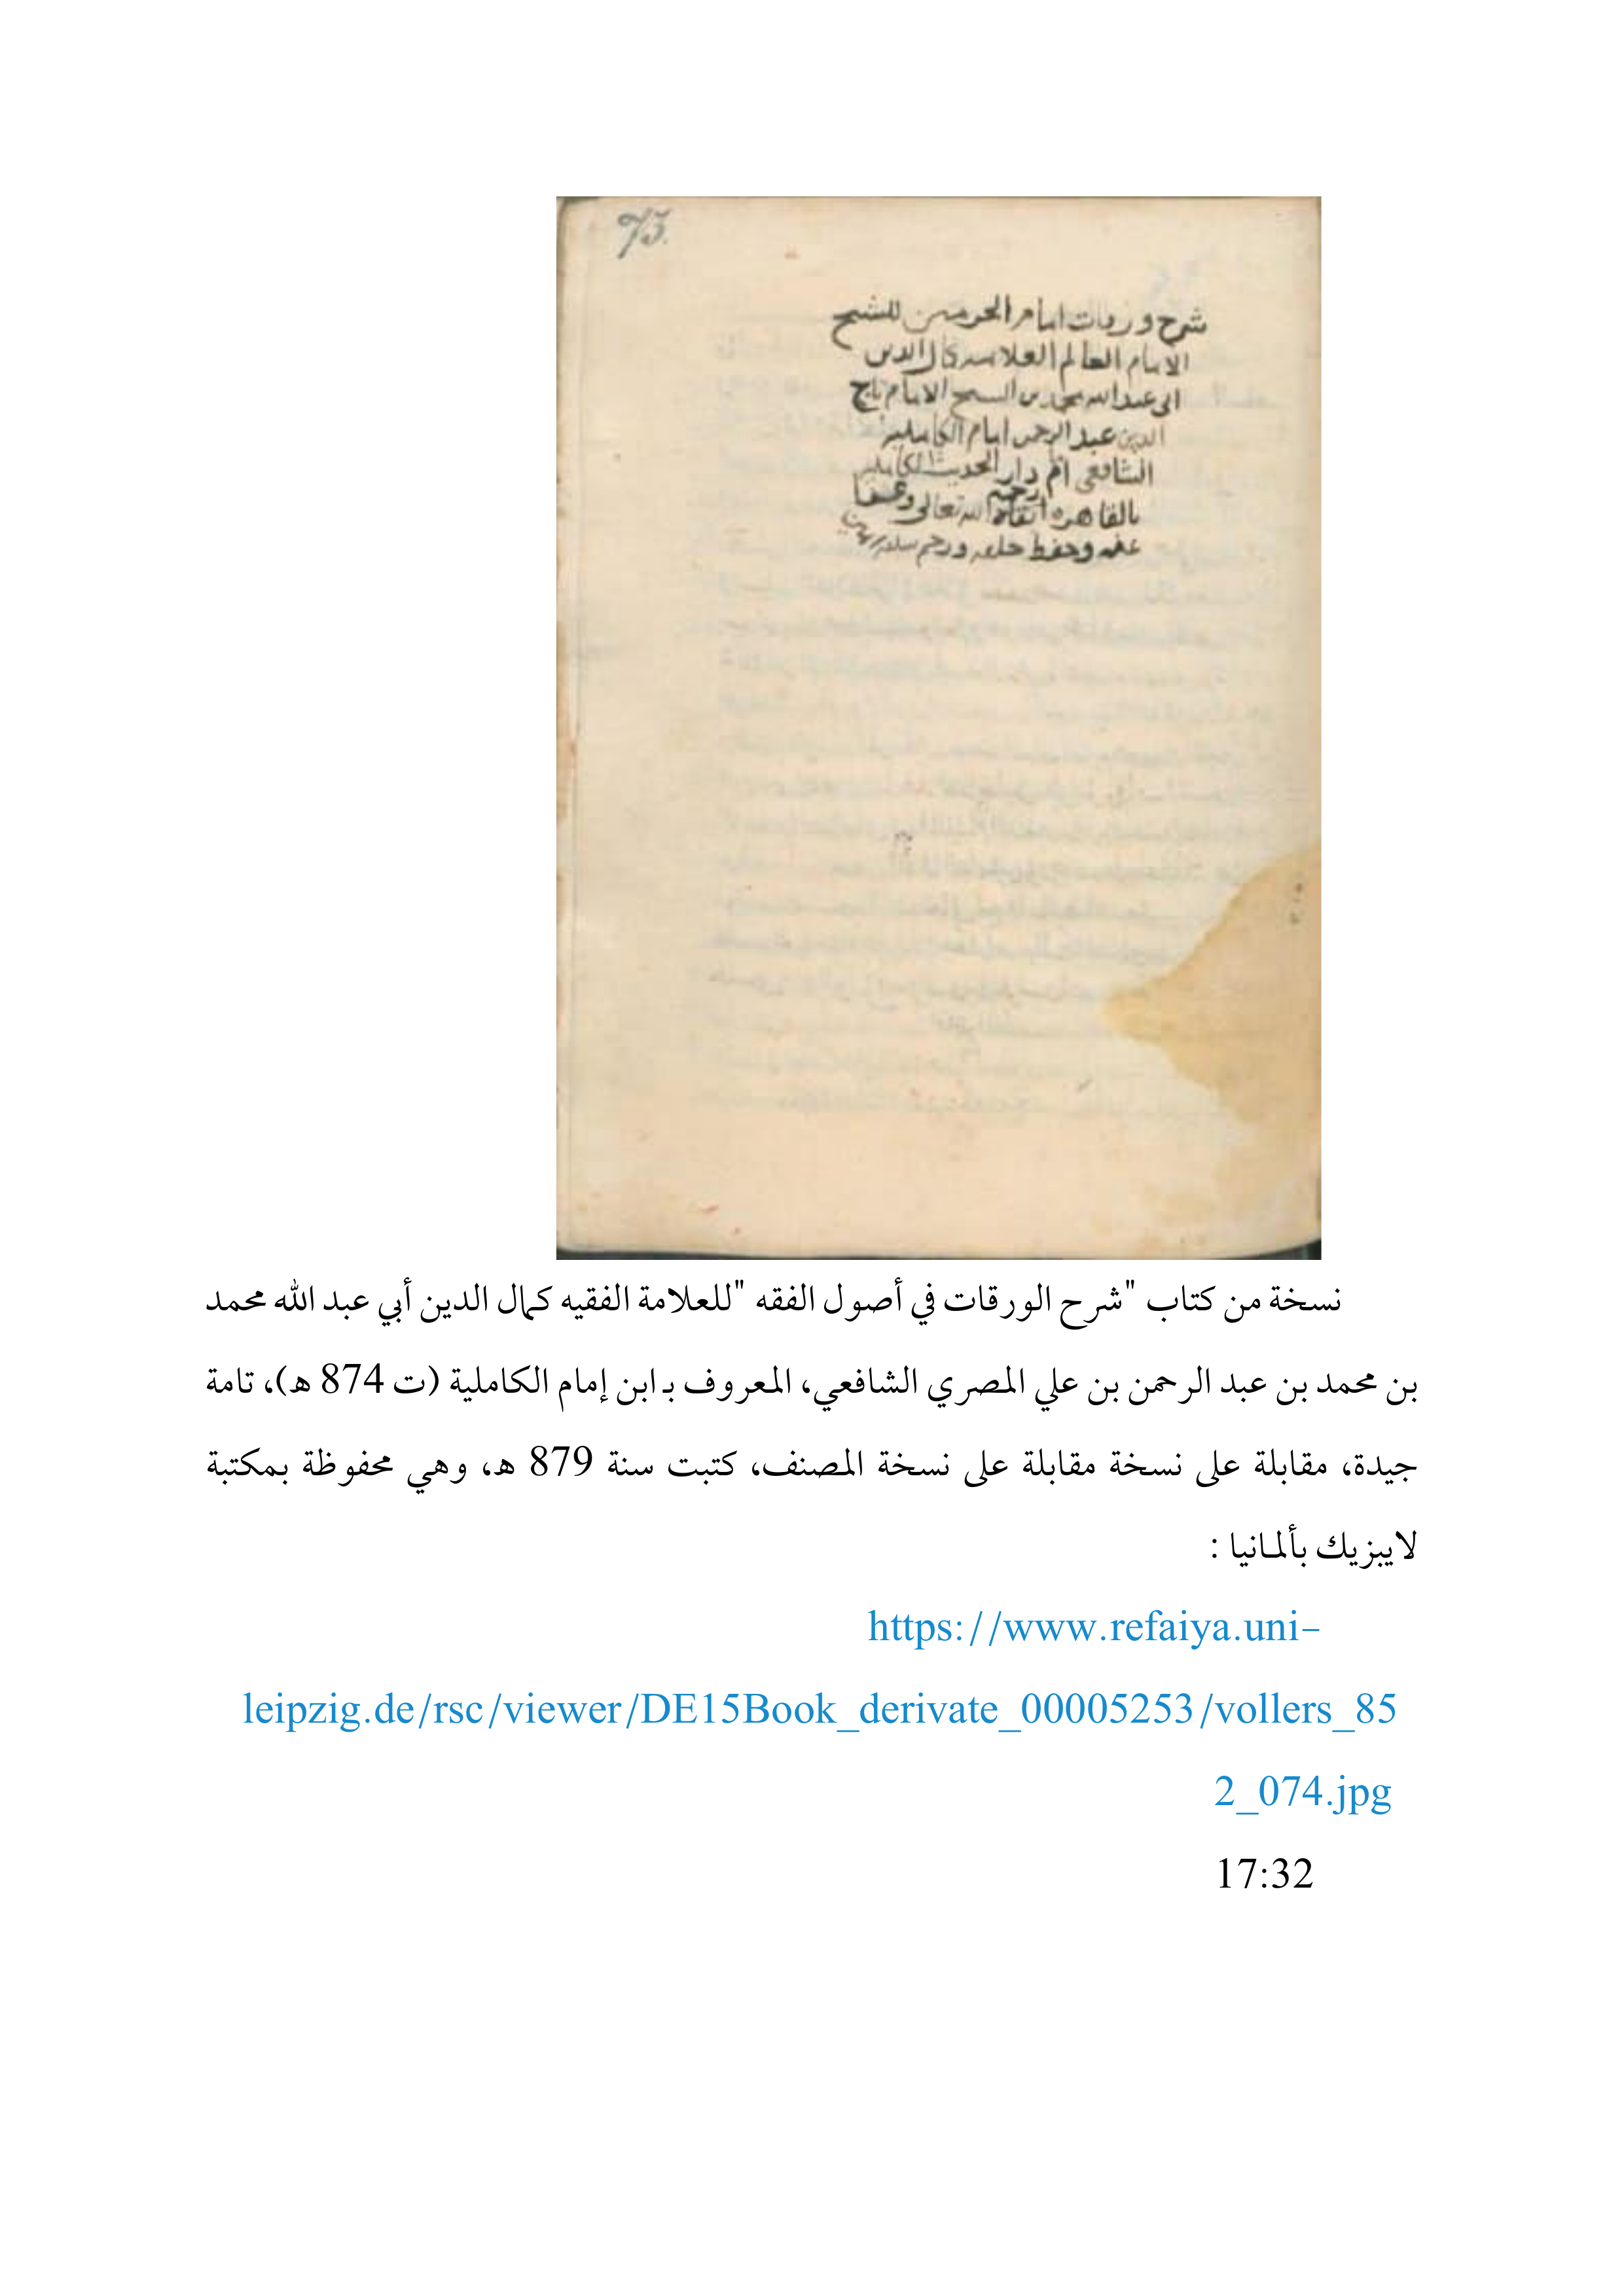 73.
شرح ورقات امام الحرمين للشيخ
الامام العالم العلامه كمال الدين
ابي عبد الله محمد بن الشيح الامام تاج
الدين عبد الرحمن امام الكامليه
الشافعي امام دار الحديث الكامليه
بالقاهره الله تعالى وعفا
رحمه
عنه وحفظ ورحم سلفه
نسخة من كتاب "شرح الورقات في أصول الفقه "للعلامة الفقيه كمال الدين أبي عبد الله محمد
بن محمد بن عبد الرحمن بن علي المصري الشافعي، المعروف بـ ابن إمام الكاملية (ت 874 هـ)، تامة
جيدة، مقابلة على نسخة مقابلة على نسخة المصنف، كتبت سنة 879 هـ، وهي محفوظة بمكتبة
لايبزيك بألمانيا :
https://www.refaiya.uni-
leipzig.de/rsc/viewer/DE15Book_derivate_00005253/vollers_85
2_074.jpg
17:32